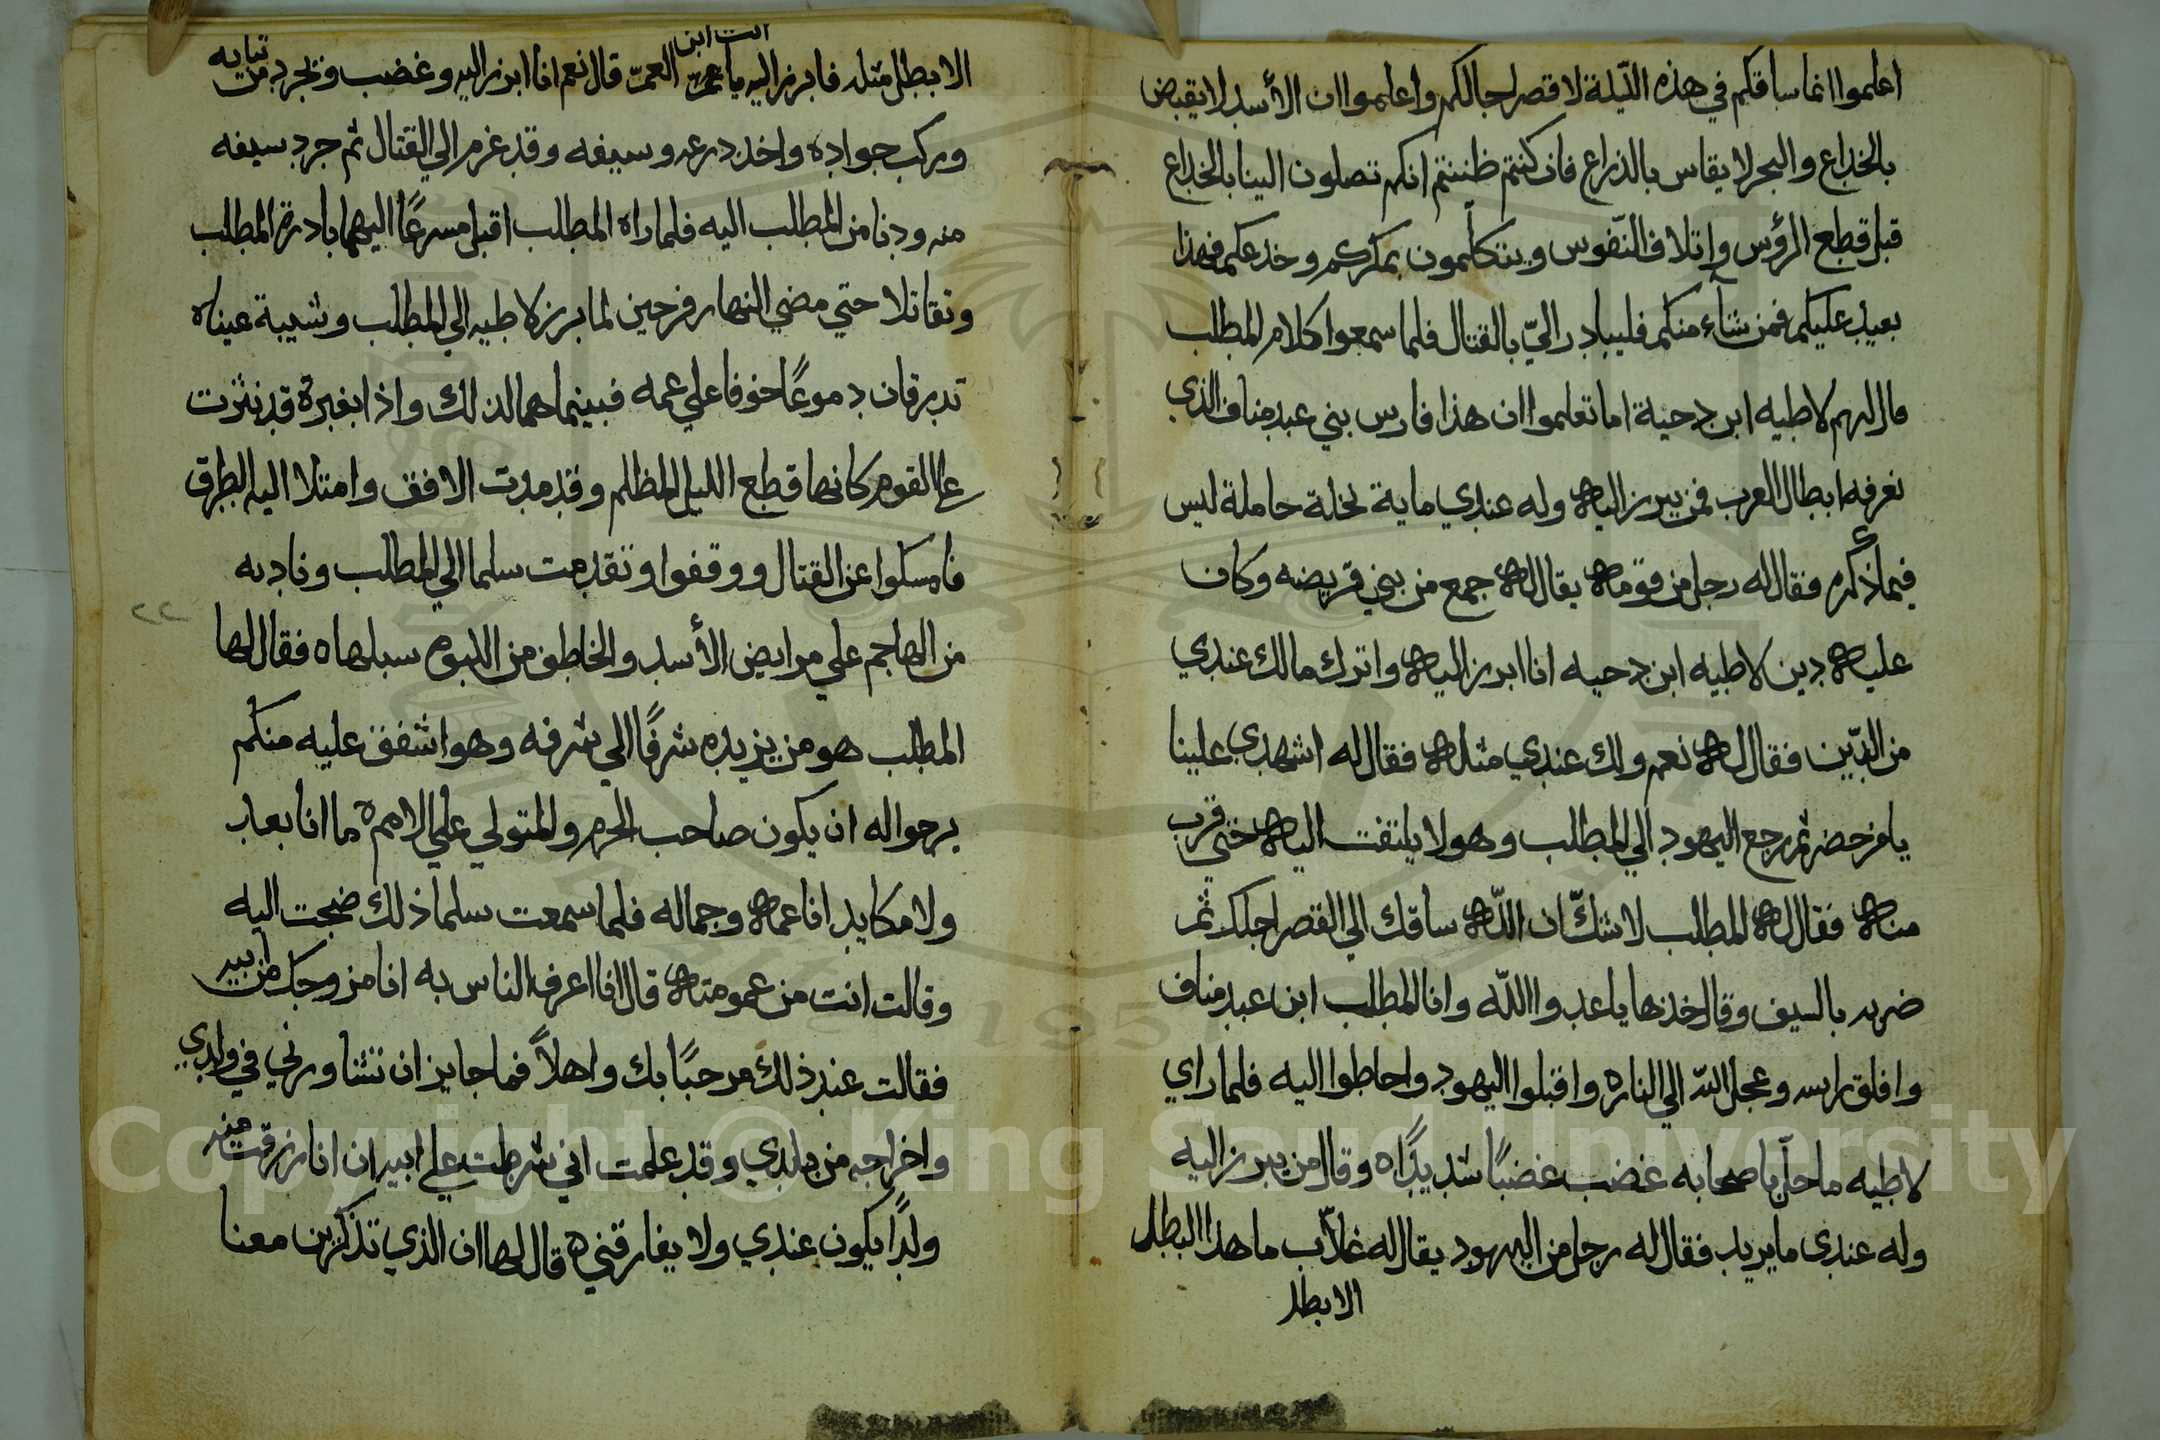 اعلموا انما ساقكم في هذه الليلة لاقصر اجالكم واعلموا ان الأسد لا يقبض
بالخداع والبحر لا يقاس بالذراع فان كنتم ظننتم انكم تصلون الينا بالخداع
قبل قطع الرؤس واتلاف النفوس وتتكلمون بمكركم وخدعكم فهذا
بعيد عليكم فمن شآء منكم فليبادر اليّ بالقتال فلما سمعوا كلام المطلب
قال لهم لاطيه ابن دحية اما تعلموا ان هذا فارس بني عبد مناف الذي
تعرفه ابطال العرب فمن يبرز اليه وله عندي ماية نخلة حاملة ليس
فيها ذكر فقال له رجل من قومه يقال له جمع من بني قريضه وكان
عليه دين لاطيه ابن دحيه انا ابرز اليه واترك مالك عندي
من الدّين فقال له نعم ولك عندي مثله فقال له اشهدي علينا
يا من حضر ثم رجع اليهود الي المطلب وهو لا يلتفت اليه حتي قرب
منه فقال له المطلب لا شكّ ان اللّه ساقك الي القصر اجلك ثم
ضربه بالسيف وقال خذها يا عدوا اللّه وانا المطلب ابن عبد مناف
وافلق راسه وعجل الله الي الناره واقبلوا اليهود واحاطوا اليه فلما راي
لاطيه ما حلّ باصحابه غضب غضبًا شديدًاه وقال من يبرز اليه
وله عندي ما يريد فقال له رجل من اليهود يقال له غلاّب ما هذا البطل
الا بطل
انت ابن
الا بطل مثله فابرز اليه يا العمّ قال نعم انا ابرز اليه وغضب وتجرد من ثيابه
وركب جواده واخذ درعه وسيفه وقد عزم الي القتال ثم جرد سيفه
منه ودنا من المطلب اليه فلما راه المطلب اقبل مسرعًا اليهما بادرة المطلب
وتقاتلا حتي مضي النهار فرحين لما برز لاطيه الي المطلب وشيبة عيناه
تدرقان دموعًا خوفا علي عمه فبينما هما لذلك واذا بغبرة قد نثرت
علا القوم كانها قطع الليل المظلم وقد مدت الافق وامتلا اليه الطرق
فامسكوا عن القتال ووقفوا وتقدمت سلما الي المطلب ونادته
من الهاجم علي مرابض الأسد والخاطف من اللبوه سبلهاه فقال لها
المطلب هو من يزيده شرفًا الي شرفه وهو اشفق عليه منكم
يرجوا له ان يكون صاحب الحرم والمتولي علي الامم ه ما انا بعاد
ولا مكايد انا عمه وجماله فلما سمعت سلما ذلك ضجت اليه
وقالت انت من عمومته قال انا اعرف الناس به انا من وحك من بير
فقالت عند ذلك مرحبًا بك واهلاً فما جايز ان تشاورني في ولدي
واخراجه من بلدي وقد علمت اني شرطت علي ابيه ان انا رزقت منه
ولدًا يكون عندي ولا يفارقني ه قال لها ان الذي تذكرين معنا
٢٢
Copyright © King Saud University
1957